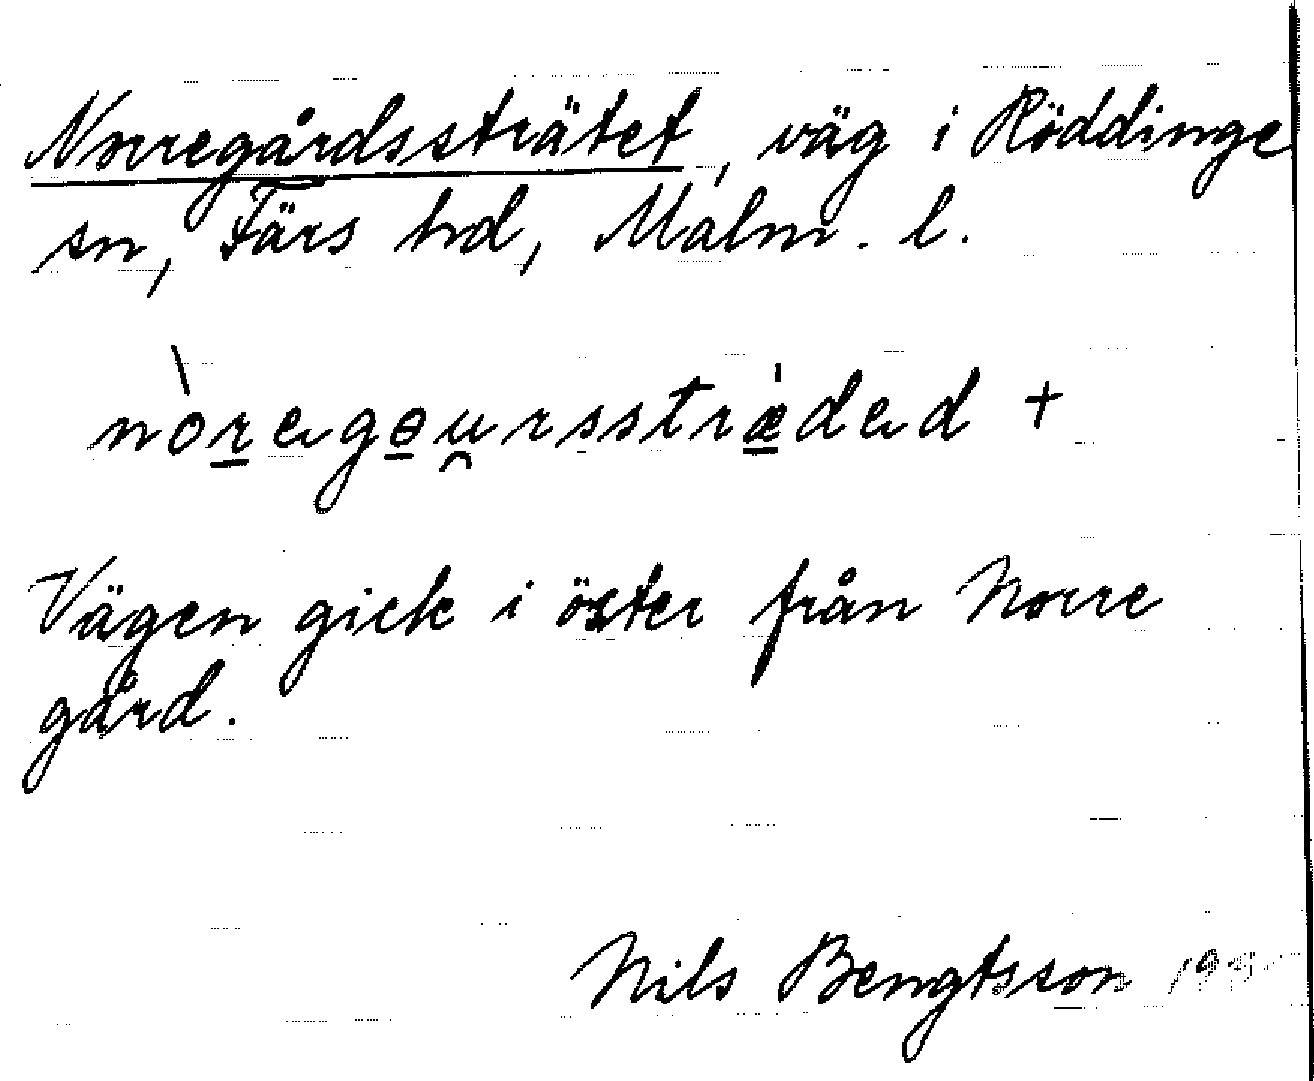 Norregårdssträtet, väg i Röddinge
sn, Färs hd, Malm. l.
nòregɵu̯rsstrædəd +
Vägen gick i öster från Norre
gård.
Nils Bengtsson